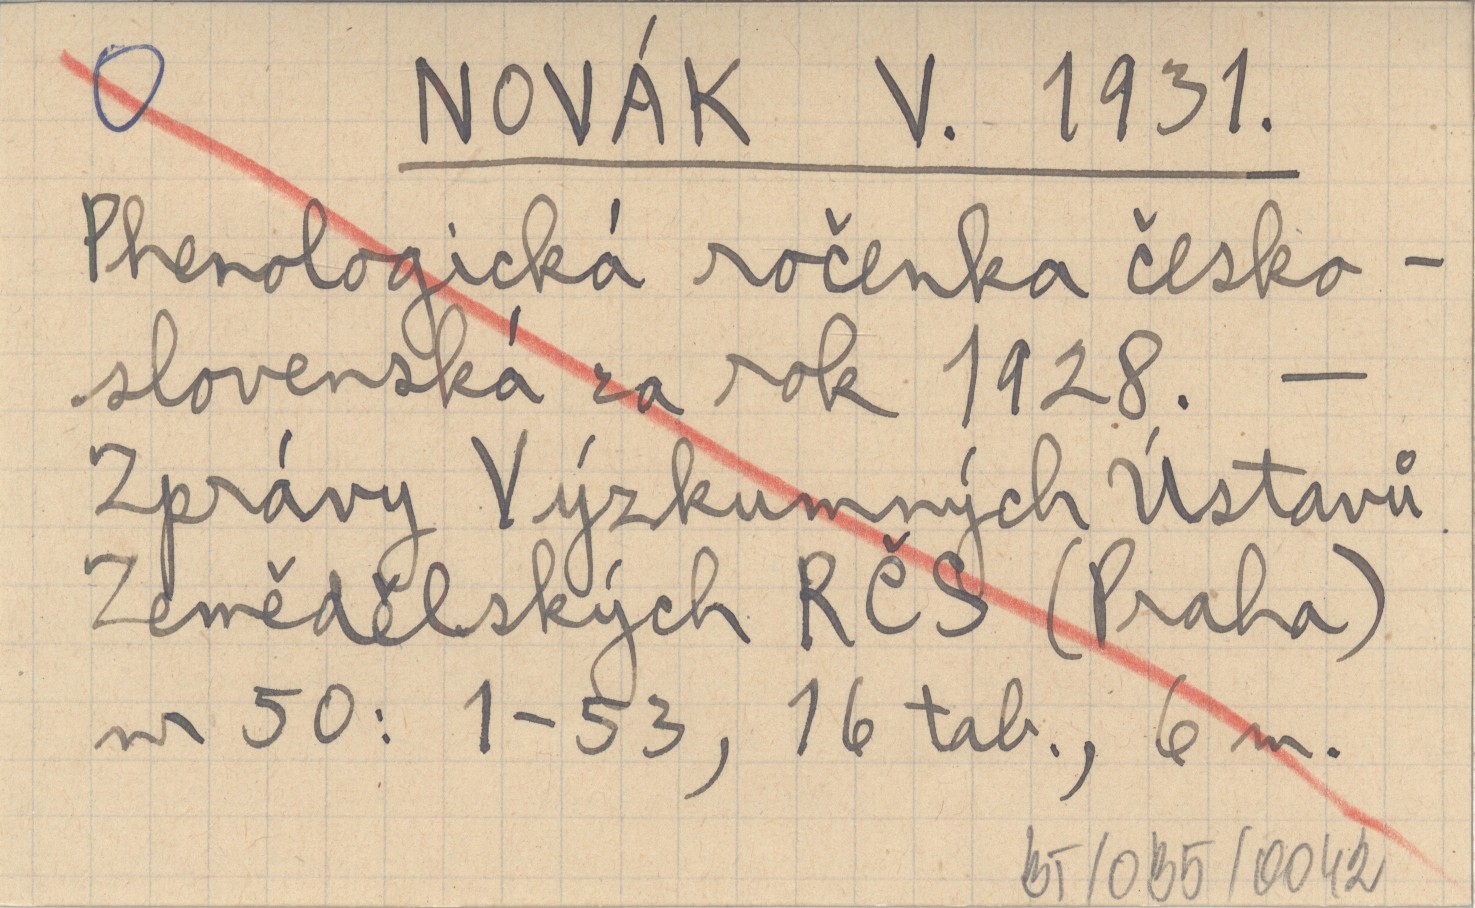 O NOVÁK V. 1931.
Phenologická ročenka česko-
slovenská za rok 1928. —
Zprávy Výzkumných Ústavů
Zemědělských RČS (Praha)
nr 50: 1-53, 16 tab., 6 m.
BT/OB5/0042